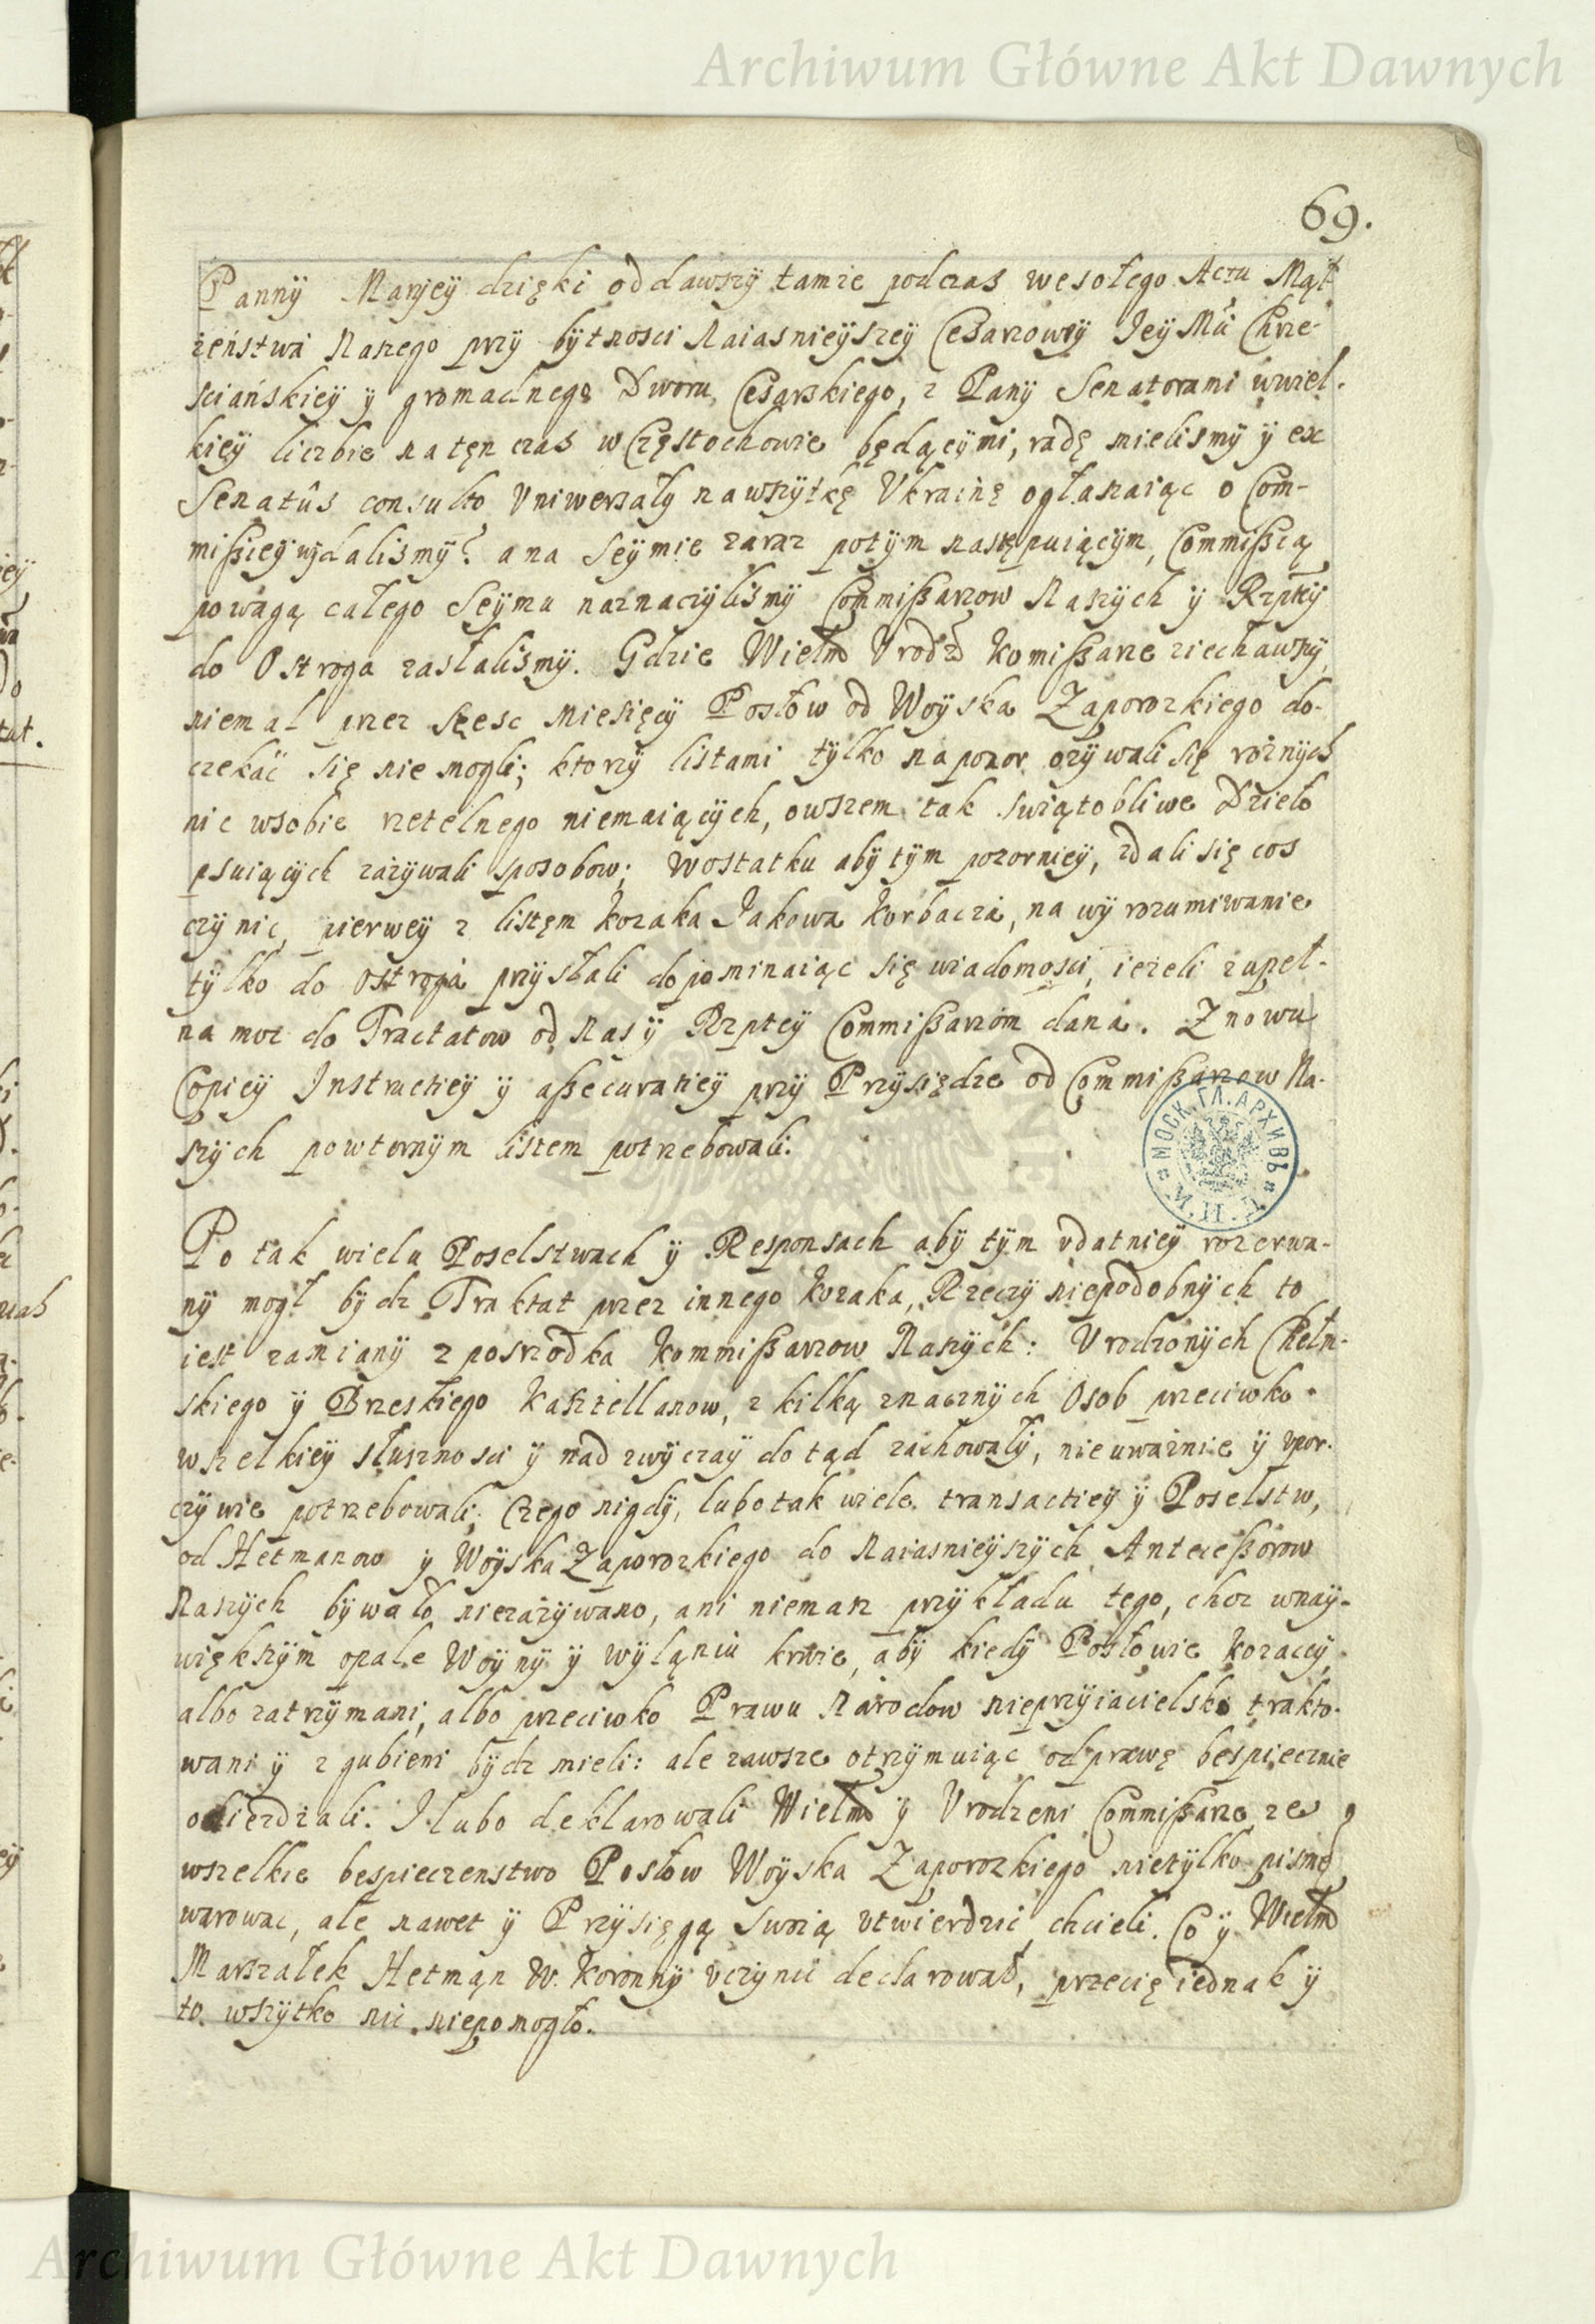 Archiwum Główne Akt Dawnych
69.
Panny Maryey dzięki oddawszy tamze podczas wesołego Actu Małt
żeństwa Naszego przy bytnosci Naiasnieyszey Cesarzowey Jey Mći Chrze-
sciańskiey y gromadnego Dworu Cesarskiego, z Pany Senatorami w wiel-
kiey liczbie na tęn czas w Częstochowie będącymi, radę mielismy y ex
Senatûs consulto Vniwersały na wszytkę Vkrainę ogłaszaiąc o Com-
missiey wydalismy: a na Seymie zaraz potym następuiącym, Commissią
powagą całego Seymu naznaczylismy Commissarzow Naszych y Rzptey
do Ostroga zasłalismy. Gdzie Wielm Vrodz Komissarze ziechawszy
niemal przez szesc Miesięcy Posłow od Woyska Zaporozkiego do-
czekać się nie mogli; ktorzy listami tylko na pozor ozywali się rożnych
nic w sobie rzetelnego niemaiących, owszem tak swiątobliwe Dzieło
psuiących zażywali sposobow; w ostatku aby tym pozorniey, zdali się cos
czynic, pierwey z listęm Kozaka Jakowa Korbacza, na wyrozumiwanie
tylko do Ostroga przysłali dopominaiąc się wiadomosci, ieżeli zupeł-
na moc do Tractatow od Nas y Rzptey Commissarzom dana. Znowu
Copiey Instructiey y assecuratiey przy Przysiędze od Commissarzow Na-
szych powtornym listem potrzebowali.
МОСК. ГЛ. АРХИВЪ
М. И. Д.
Po tak wielu Poselstwach y Responsach aby tym vdatniey rozerwa-
ny mogł bydz Traktat przez innego Kozaka, Rzeczy niepodobnych to
iest zamiany z posrzodka Kommissarzow Naszych: Vrodzonych Chełm-
skiego y Brzeskiego Kasztellanow, z kilką znacznych Osob przeciwko
wszelkiey słusznosci y nad zwyczay do tąd zachowały, nieuważnie y vpor-
czywie potrzebowali; Czego nigdy, lubo tak wiele transactiey y Poselstw,
od Hetmanow y Woyska Zaporozkiego do Naiasnieyszych Antecessorow
Naszych bywało niezażywano, ani niemasz przykładu tego, choc w nay-
większym opale Woyny y wylaniu krwie, aby kiedy Posłowie Kozaccy
albo zatrzymani, albo przeciwko Prawu Narodow nieprzyiacielsko trakto-
wani y zgubieni bydz mieli: ale zawsze otrzymuiąc odprawę bespiecznie
odiezdzali. I lubo deklarowali Wielm y Vrodzeni Commissarze, ze
wszelkie bespieczenstwo Posłow Woyska Zaporozkiego nietylko pismę
warowac, ale nawet y Przysięgą swoią vtwierdzic chcieli. Co y Wielm
Marszałek Hetmąn W. Koronny vczynic declarował, przecię iednak y
to wszytko nic niepomogło.
Archiwum Główne Akt Dawnych